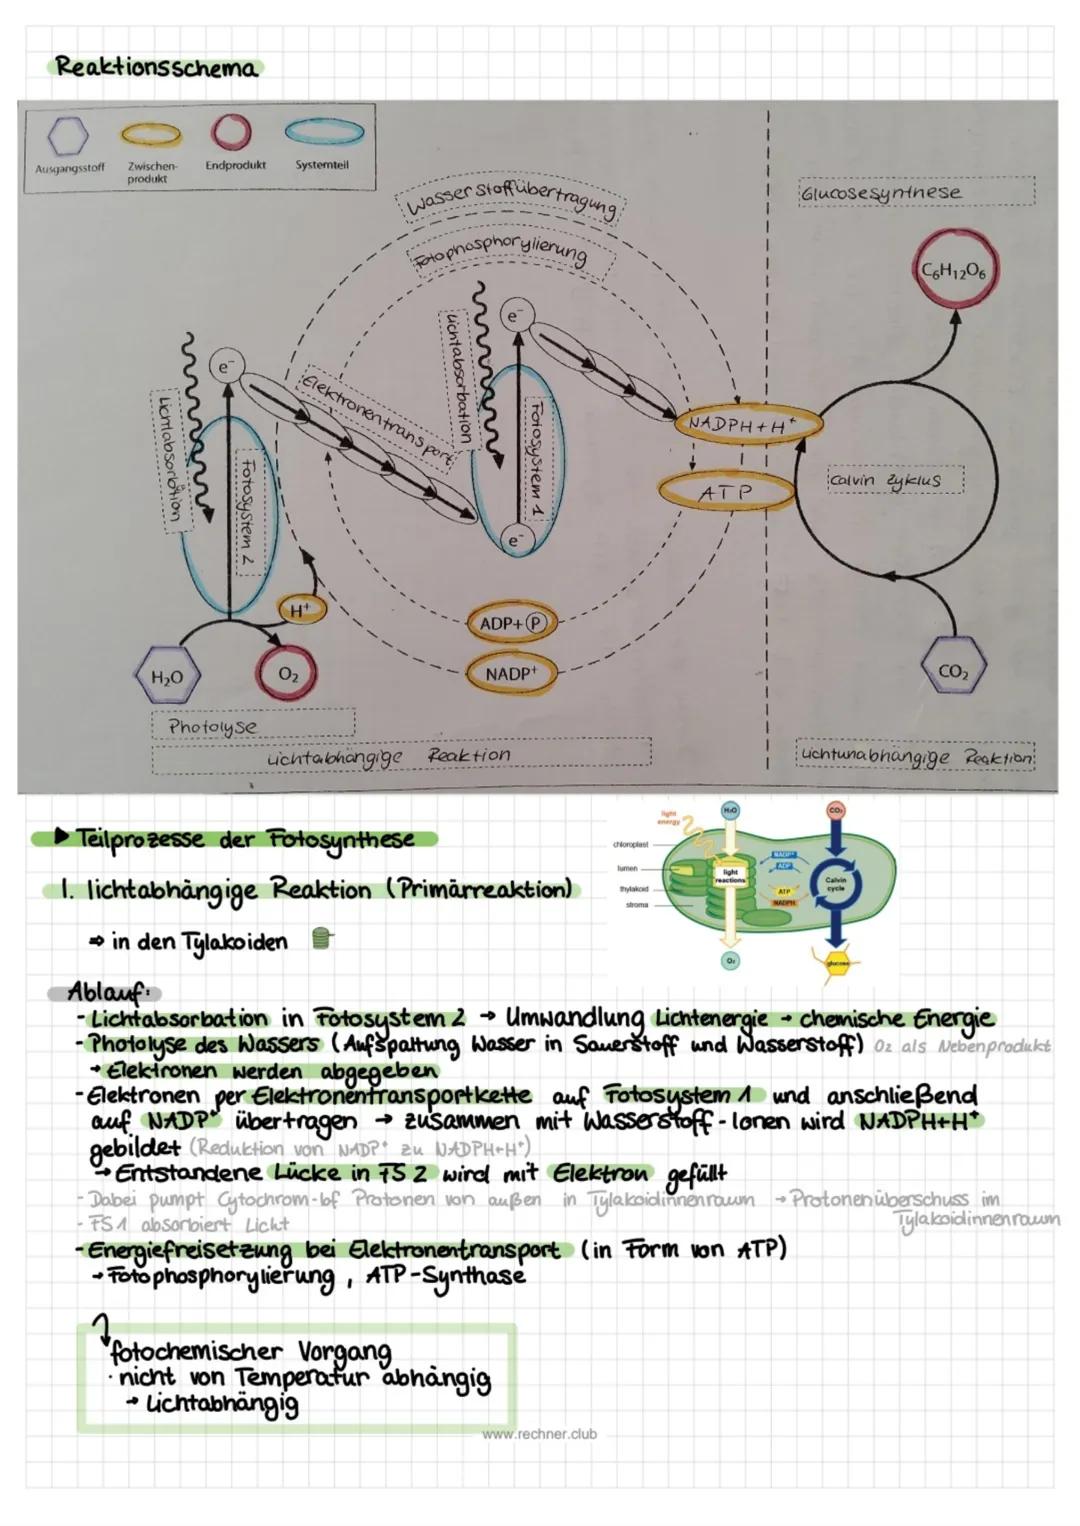 Reaktionsschema
Ausgangsstoff
Zwischen-
produkt
Endprodukt
Systemteil
Wasserstoffübertragung
Fotophosphorylierung
Glucosesynthese
C₆H₁₂O₆
e⁻
e⁻
Lichtabsorbtion
Fotosystem 2
Elektronentransport
Lichtabsorbation
Fotosystem 1
e⁻
NADPH+H⁺
ATP
Calvin Zyklus
H⁺
ADP+Ⓟ
H₂O
O₂
NADP⁺
CO₂
Photolyse
Lichtabhängige Reaktion
Lichtunabhängige Reaktion
▶ Teilprozesse der Fotosynthese
1. lichtabhängige Reaktion (Primärreaktion)
⇒ in den Tylakoiden
light
energy
H₂O
CO₂
chloroplast
lumen
thylakoid
stroma
light
reactions
NADP⁺
ADP
ATP
NADPH
Calvin
cycle
O₂
glucose
Ablauf:
- Lichtabsorbation in Fotosystem 2 → Umwandlung Lichtenergie → chemische Energie
- Photolyse des Wassers (Aufspaltung Wasser in Sauerstoff und Wasserstoff) O₂ als Nebenprodukt
→ Elektronen werden abgegeben
- Elektronen per Elektronentransportkette auf Fotosystem 1 und anschließend
auf NADP⁺ übertragen → zusammen mit Wasserstoff-Ionen wird NADPH+H⁺
gebildet (Reduktion von NADP⁺ zu NADPH+H⁺)
→ Entstandene Lücke in FS 2 wird mit Elektron gefüllt
- Dabei pumpt Cytochrom-bf Protonen von außen in Tylakoidinnenraum → Protonenüberschuss im
Tylakoidinnenraum
- FS1 absorbiert Licht
- Energiefreisetzung bei Elektronentransport (in Form von ATP)
→ Fotophosphorylierung, ATP-Synthase
fotochemischer Vorgang
· nicht von Temperatur abhängig
→ Lichtabhängig
www.rechner.club